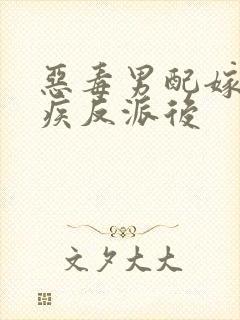 惡毒男配嫁
疾反派後
文夕大大